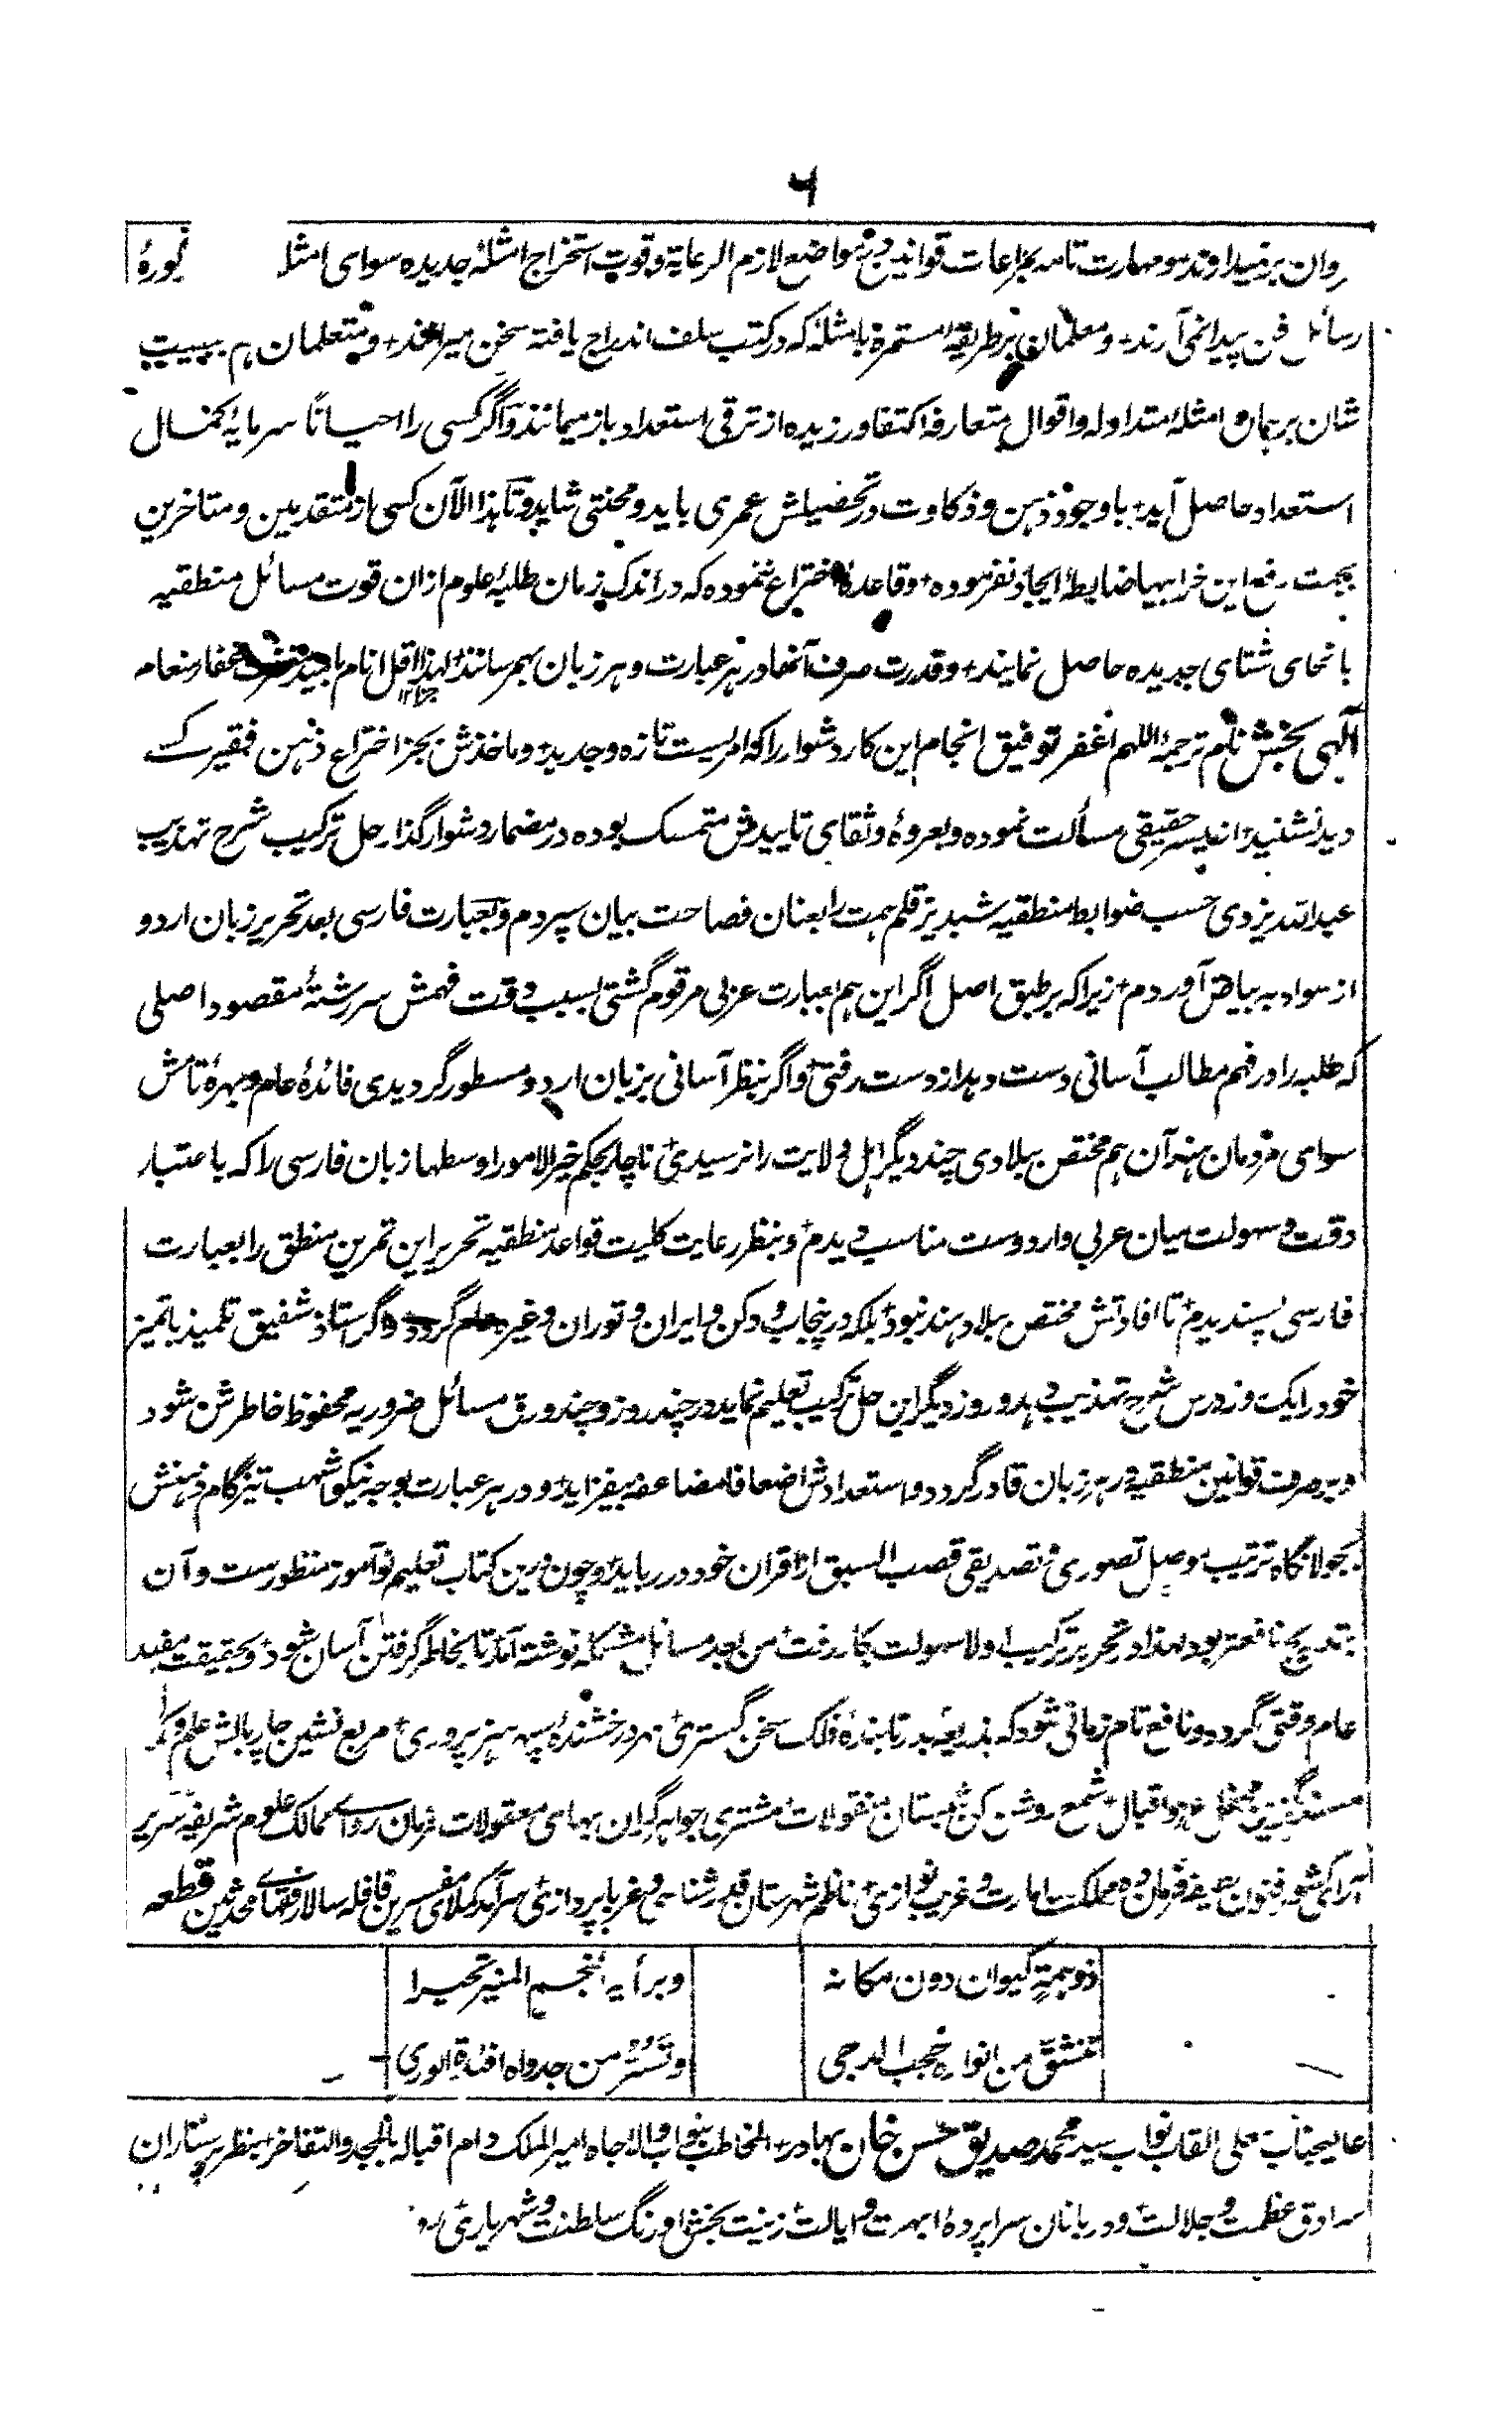 ۶
روان بر نمیدارند و مهارت تامه بمراعات قوانین در مواضع لازم الرعایة و قوت استخراج امثلهٔ جدیده سوای امثلهٔ مذکورهٔ
رسائل فن پیدا نمی آرند + و معلمان بر طریقهٔ مستمره بامثلهٔ که در کتب سلف اندراج یافته سخن میرانند + و متعلمان هم بسبب
شان بر همان امثلهٔ متداوله و اقوال متعارفه اکتفا ورزیده از ترقی استعداد باز میمانند و اگر کسی را احیانًا سرمایهٔ کمال
استعداد حاصل آید + باوجود ذهن و ذکاوت در تحصیلش عمری باید و محنتی شاید و تا هذا الآن کسی از متقدمین و متاخرین
بجهت رفع این خرابیها ضابطهٔ ایجاد نفرموده + و قاعدهٔ اختراع ننموده که در اندک زمان طلبهٔ علوم ازان قوت مسائل منطقیه
بانحای شتای جدیده حاصل نمایند + و قدرت صرف آنها در هر عبارت و هر زبان بهم رسانند + لهذا اقل انام
آلهی بخش نام ترجمهٔ اللهم اغفر توفیق انجام این کار دشوار را که امریست تازه و جدید + و ماخذش بجز اختراع ذهن فقیر کسے
دید نشنید + از میسر حقیقی مسألت نموده و بعروهٔ وثقای تاییدش متمسک بوده در مضمار دشوار گذار حل ترکیب شرح تهذیب
عبدالله یزدی حسب ضوابط منطقیه شبدیز قلم همت را بعنان فصاحت بیان سپردم و بعبارت فارسی بعد تحریر زبان اردو
از سواد به بیاض آوردم + زیرا که بر طبق اصل اگر این هم بعبارت عربی مرقوم گشتی بسبب دقت فهمش سررشتهٔ مقصود اصلی
که طلبه را در فهم مطالب آسانی دست دهد از دست رفتی + و اگر بنظر آسانی بزبان اردو مسطور گردیدی فائدهٔ عام و بهرهٔ تامش
سوای مردمان هند آن هم مختص ببلادی چند دیگر اهل ولایت را نرسیدی + ناچار بحکم خیر الامور اوسطها زبان فارسی را که باعتبار
دقت و سهولت میان عربی و اردوست مناسب دیدم + و بنظر رعایت کلیت قواعد منطقیه تحریر این تمرین منطق را بعبارت
فارسی پسندیدم + تا افادتش مختص ببلاد هند نبود + بلکه در پنجاب و دکن و ایران و توران و غیره عام گردد و اگر استاد شفیق تلمیذ باتمیز
خود را یک روز درس شرح تهذیب دهد و روز دیگر این حل ترکیب تعلیم نماید در چند روز و چند ورق مسائل ضروریه محفوظ خاطرش شود
و بر صرف قوانین منطقیه در هر زبان قادر گردد و استعدادش اضعافا مضاعفه بیفزاید + و در هر عبارت بوجه نیکو اشهب تیزگام ذهنش
بجولانگاه ترتیب موصل تصوری و تصدیقی قصب السبق از اقران خود در رباید + و چون درین کتاب تعلیم نوآموز منظورست و آن
بتدریج نافعتر بود لهذا در تحریر ترکیب اولا سهولت بکار رفت + من بعد مسائل مشکله نوشته آمد + تا بخاطر گرفتن آسان شود + و بحقیقت مفید
عام وقتی گردد و نافع تام زمانی شود که بذریعهٔ بدر تابندهٔ فلک سخن گستری + مهر درخشندهٔ سپهر هنرپروری + مربع نشین چار بالش علم و کمال
مسند گزین محفل جاه و اقبال + شمع روشن کن شبستان منقولات + مشتری جواهر گران بهای معقولات فرمان روای ممالک علوم شریفه سریر
آرای کشور فنون فرمان ده مملکت امارت و غریب نوازی + ناظم شهرستان قدر شناسی و غربا پردازی + سرآمد کملای مفسرین قافله سالار فقهای محدثین قطعه
ذو همةٍ کیوان دون مکانه
و برأیه النجم المنیر تحیرا
تنشقّ من انواره حجب الدجی
و تَسُرُّ من جدواه افئدة الوری
عالیجناب معلی القاب نواب سید محمد صدیق حسن خان بهادر + المخاطب بنواب والاجاه امیر الملک دام اقباله بالمجد و التفاخر + بنظر پرستاران
سرادق عظمت و جلالت + و دربانان سراپردهٔ ابهت و ایالت + زینت بخش اورنگ سلطنت و شهریاری +